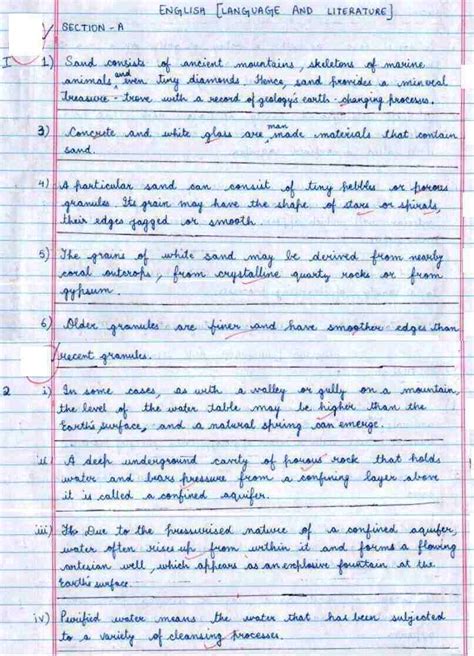 ENGLISH [LANGUAGE AND LITERATURE]
SECTION - A
I 1) Sand consists of ancient mountains, skeletons of marine
animals and even tiny diamonds. Hence, sand provides a mineral
treasure - trove with a record of geology's earth - changing processes.
3) Concrete and white glass are man made materials that contain
sand.
4) A particular sand can consist of tiny pebbles or porous
granules. Its grain may have the shape of stars or spirals,
their edges jagged or smooth.
5) The grains of white sand may be derived from nearby
coral outcrops, from crystalline quartz rocks or from
gypsum.
6) Older granules are finer and have smoother edges than
recent granules.
2 i) In some cases, as with a valley or gully on a mountain,
the level of the water table may be higher than the
Earth's surface, and a natural spring can emerge.
ii A deep underground cavity of porous rock that holds
water and bears pressure from a confining layer above
it is called a confined aquifer.
iii) Its Due to the pressurised nature of a confined aquifer,
water often rises up from within it and forms a flowing
artesian well, which appears as an explosive fountain at the
Earth's surface.
iv) Purified water means the water that has been subjected
to a variety of cleansing processes.